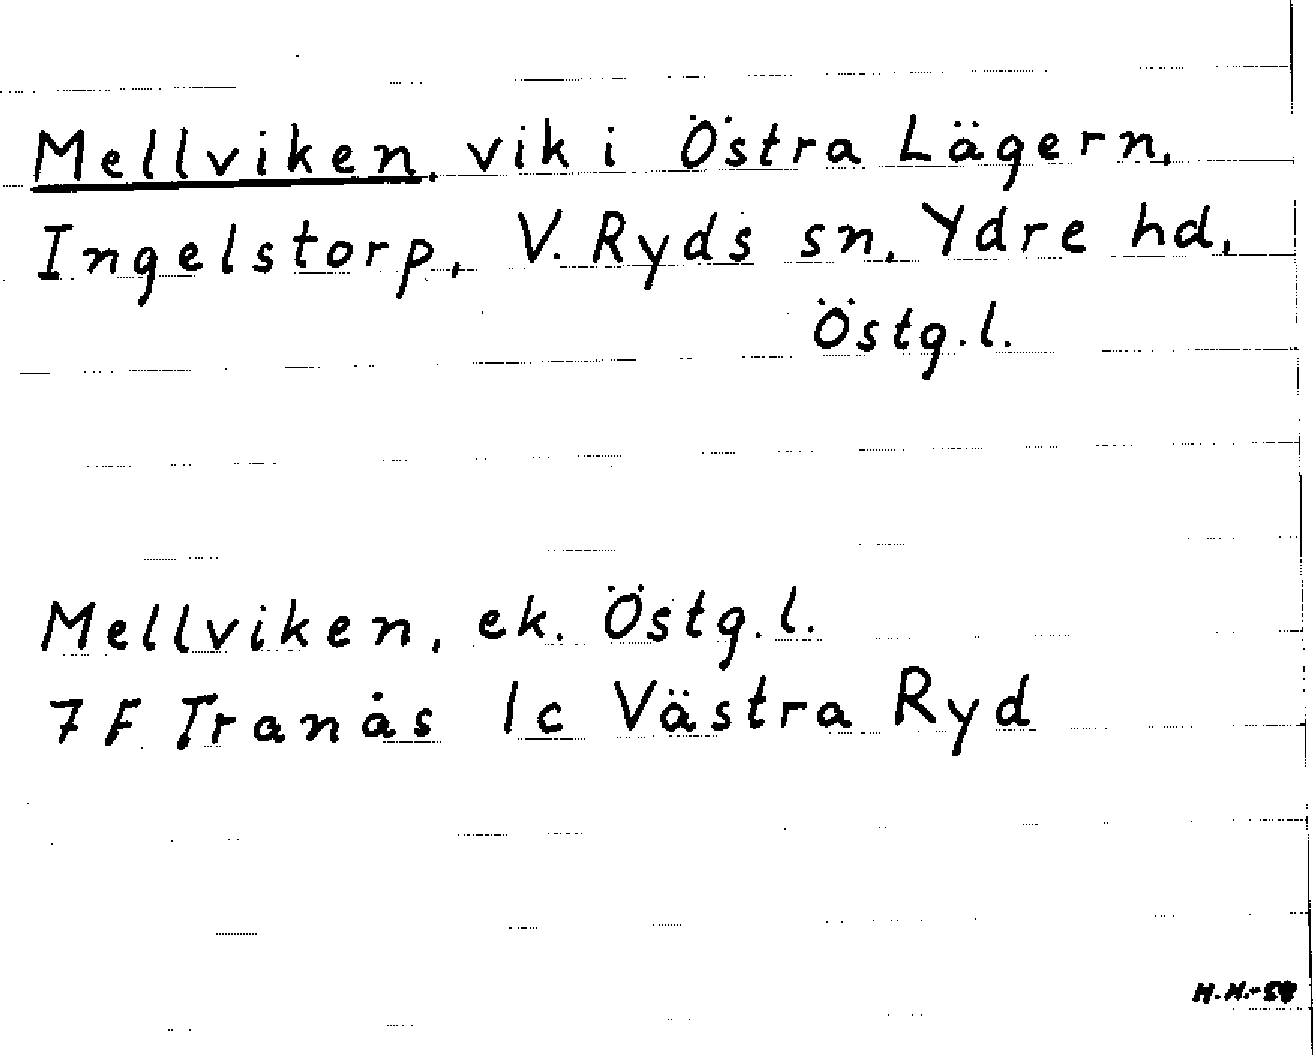 Mellviken, vik i Östra Lägern,
Ingelstorp, V. Ryds sn, Ydre hd,
Östg.l.
Mellviken, ek. Östg.l.
7 F Tranås 1c Västra Ryd